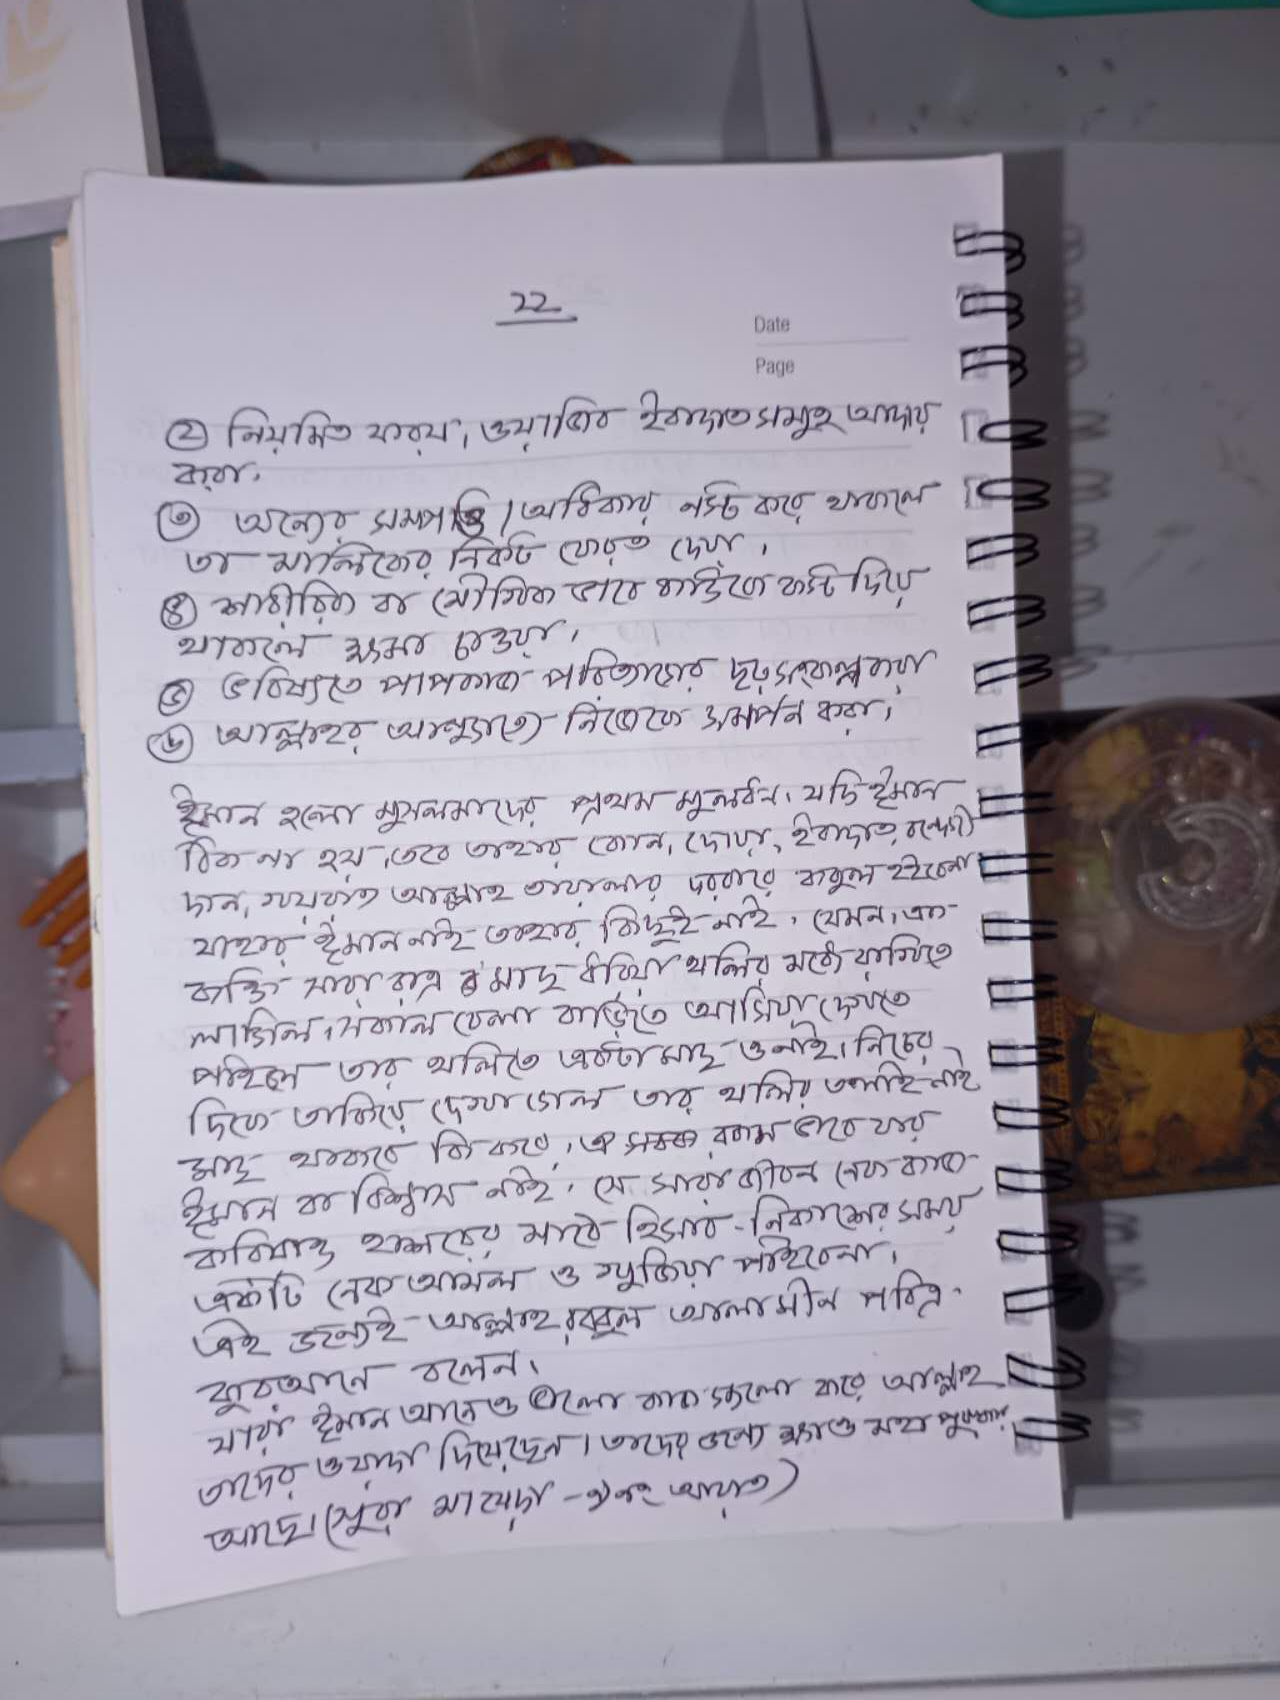 ২২
Date
Page
② নিয়মিত ফরয, ওয়াজিব ইবাদাত সমূহ আদায়
করা.
③ অন্যের সম্পত্তি / অধিকার নস্ট করে থাকলে
তা মালিকের নিকট ফেরত দেয়া,
④ শারীরিক বা মৌখিক ভাবে কাউকে কস্ট দিয়ে
থাকলে ক্ষমা চাওয়া,
⑤ ভবিষ্যতে পাপকাজ পরিত্যাগের দৃঢ়সংকল্প করা
⑥ আল্লাহর আনুগত্যে নিজেকে সমর্পন করা,
ঈমান হলো মুসলমাদের প্রথম মুলধন. যদি ঈমান
ঠিক না হয়, তবে তাহার কোন, দোয়া, ইবাদাত, বন্দেগী
দান, খয়রাত আল্লাহ তায়ালার দরবারে কবুল হইবেনা
যাহার ঈমান নাই তাহার কিছুই নাই. যেমন, এক
ব্যক্তি সারা রাত্র মাছ ধরিয়া থলির মধ্যে রাখিতে
লাগিল, সকাল বেলা বাড়িতে আসিয়া দেখতে
পাইল তার থলিতে একটা মাছ ও নাই। নিচের
দিকে তাকিয়ে দেখা গেল তার থলির তলাই নাই
মাছ থাকবে কি করে, ঐ রকম ভাবে যার
ঈমান বা বিশ্বাস নাই. সে সারা জীবন নেক কাজ
করিয়াও হাশরের মাঠে হিসাব-নিকাশের সময়
একটি নেক আমল ও খুজিয়া পাইবেনা,
এই জন্যেই আল্লাহ রব্বুল আলামীন পবিত্র
কুরআনে বলেন,
যারা ঈমান আনে ও ভালো কাজ গুলো করে আল্লাহ
তাদের ওয়াদা দিয়েছেন। তাদের জন্যে ক্ষমাও মহা পুরুস্কার
আছে। (সুরা মায়েদা - আয়াত)